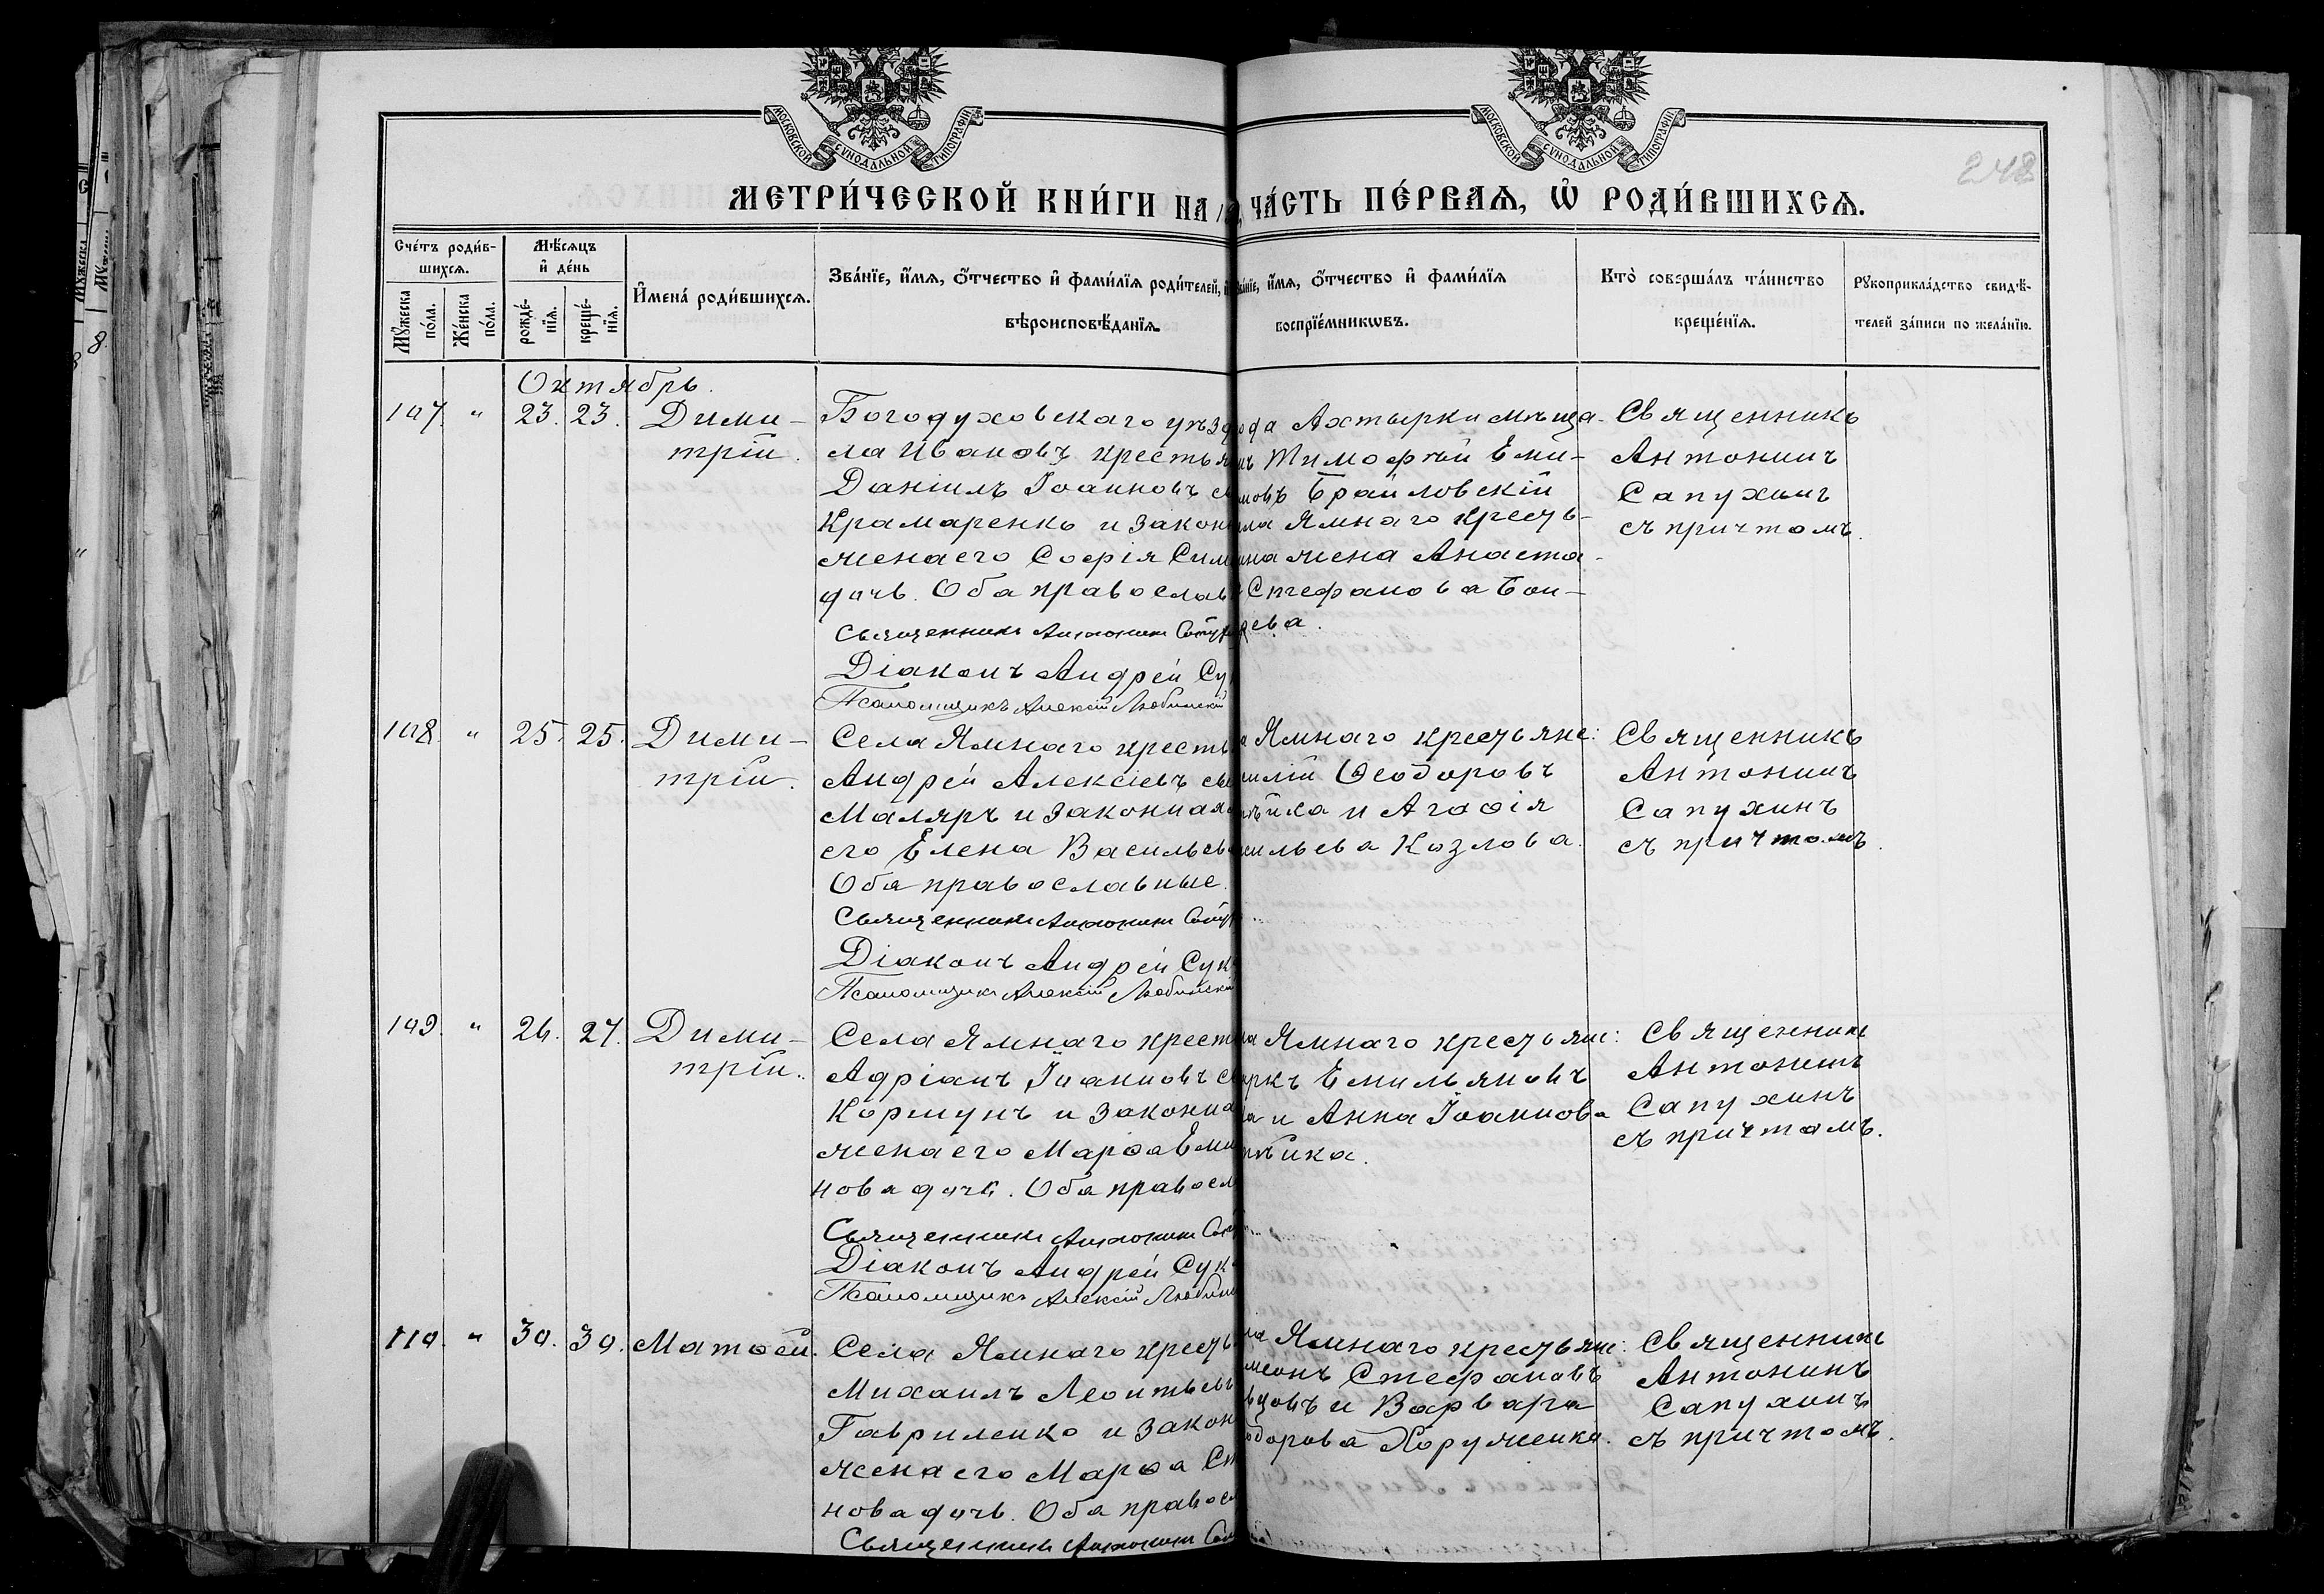 МОСКОВСКОЙ СѴНОДАЛЬНОЙ ТИПОГРАФІИ
МОСКОВСКОЙ СѴНОДАЛЬНОЙ ТИПОГРАФІИ
248
МЕТРИ́ЧЕСКОЙ КНИ́ГИ НА
ЧА́СТЬ ПЕ́РВАѦ, Ѡ҆ РОДИ́ВШИХСѦ.
Сче́тъ роди́в-
шихсѧ.
Мѣ́сѧцъ
и҆ де́нь
И҆мена̀ роди́вшихсѧ.
Зва́нїе, и҆́мѧ, ѻ҆́тчество и҆ фами́лїѧ роди́телей,
вѣроисповѣ́данїѧ.
и҆́мѧ, ѻ҆́тчество и҆ фами́лїѧ
воспрїе́мникѡвъ.
Кто̀ соверша́лъ та́инство
креще́нїѧ.
Рꙋкоприкла́дство свидѣ́-
телей за́писи по жела́нїю.
Мꙋ́жеска
по́ла.
Же́нска
по́ла.
рожде́-
нїѧ.
креще́-
нїѧ.
Октябрь.
107. " 23. 23. Дими-
трій.
Богодуховскаго уѣз
ла Ивановъ крестья
Даніилъ Іоанновъ с
Крамаренко и закон
жена его Софія Сим
дочь. Оба православ
Священникъ Антонинъ Сапух
Діаконъ Андрей Су
Псаломщикъ Алексій Любинскій
ода Ахтырки мѣща-
нъ Тимофѣй Еми-
новъ Брайловскій
ла Ямнаго кресть-
ина жена Анаста-
Стефанова Бон-
ева.
Священникъ
Антонинъ
Сапухинъ
съ причтомъ.
108. " 25. 25. Дими-
трій.
Села Ямнаго кресть
Андрей Алексіевъ сы
Маляръ и законная
его Елена Васильев
Оба православные.
Священникъ Антонинъ Сапух
Діаконъ Андрей Сук
Псаломщикъ Алексій Любинскій
Ямнаго крестьяне:
илій Ѳеодоровъ
ѣйка и Агафія
сильева Козлова.
Священникъ
Антонинъ
Сапухинъ
съ причтомъ.
109. " 26. 27. Дими-
трій.
Села Ямнаго крест
Адріанъ Іоанновъ с
Коршунъ и законна
жена его Марѳа Еми
нова дочь. Оба правосл
Священникъ Антонинъ Сап
Діаконъ Андрей Сук
Псаломщикъ Алексій Любин
ла Ямнаго крестьян:
ркъ Емильяновъ
а и Анна Іоаннова
ѣйка.
Священникъ
Антонинъ
Сапухинъ
съ причтомъ.
110. " 30. 30. Матѳей.
Села Ямнаго кресть
Михаилъ Леонтьевъ
Гавриленко и закон
жена его Марѳа Ст
нова дочь. Оба правос
Священникъ Антонинъ Сап
ла Ямнаго крестьян:
меонъ Стефановъ
вцовъ и Варвара
одорова Хоруженка.
Священникъ
Антонинъ
Сапухинъ
съ причтомъ.